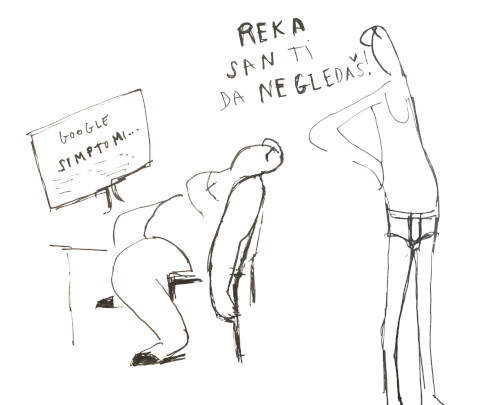 REKA
SAN TI
DA NE GLEDAŠ!
GOOGLE
SIMPTOMI...